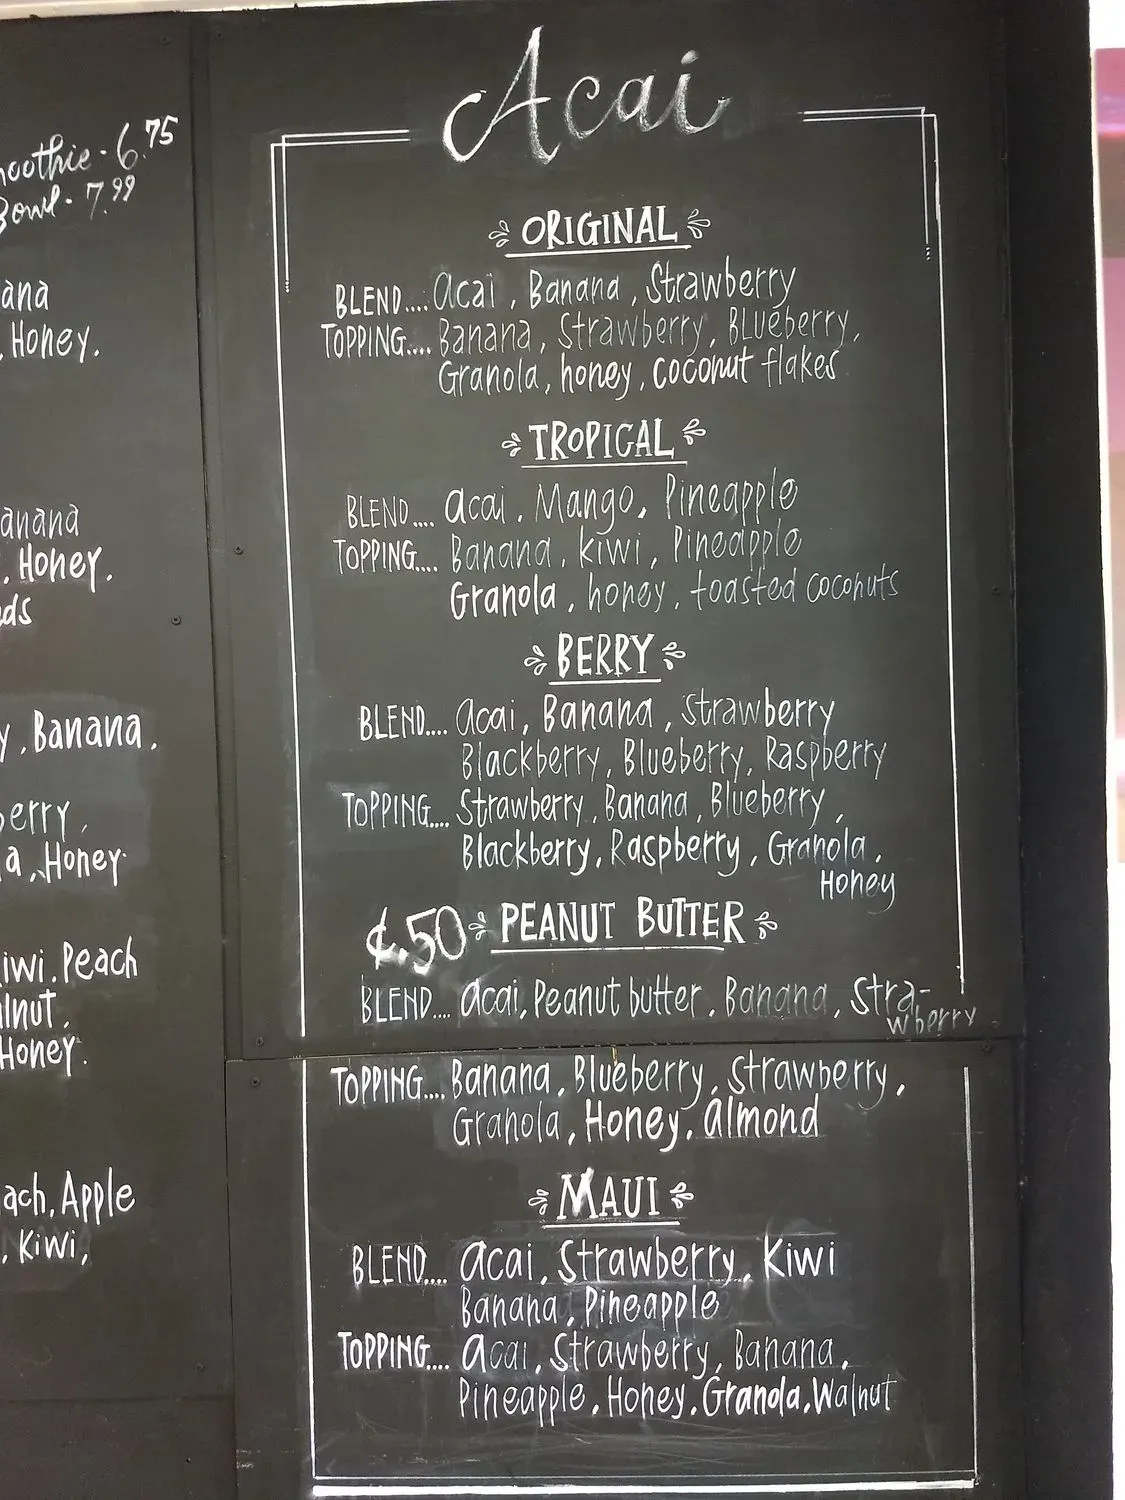 Acai
moothie - 6.75
Bowl - 7.99
ana
, Honey.
anana
, Honey.
ds
y, Banana,
berry,
a, Honey
iwi. Peach
lnut,
Honey.
ach, Apple
, Kiwi,
ORIGINAL
BLEND.... acai, Banana, Strawberry
TOPPING.... Banana, Strawberry, BLueberry,
Granola, honey, coconut flakes
TROPICAL
BLEND.... acai, Mango, Pineapple
TOPPING.... Banana, kiwi, Pineapple
Granola, honey, toasted coconuts
BERRY
BLEND.... acai, Banana, Strawberry
Blackberry, Blueberry, Raspberry
TOPPING.... Strawberry, Banana, Blueberry,
Blackberry, Raspberry, Granola,
Honey
.50 PEANUT BUTTER
BLEND.... acai, Peanut butter, Banana, Stra-
wberry
TOPPING.... Banana, Blueberry, Strawberry,
Granola, Honey, almond
MAUI
BLEND.... acai, Strawberry, Kiwi
Banana, Pineapple
TOPPING.... acai, Strawberry, Banana,
Pineapple, Honey, Granola, Walnut